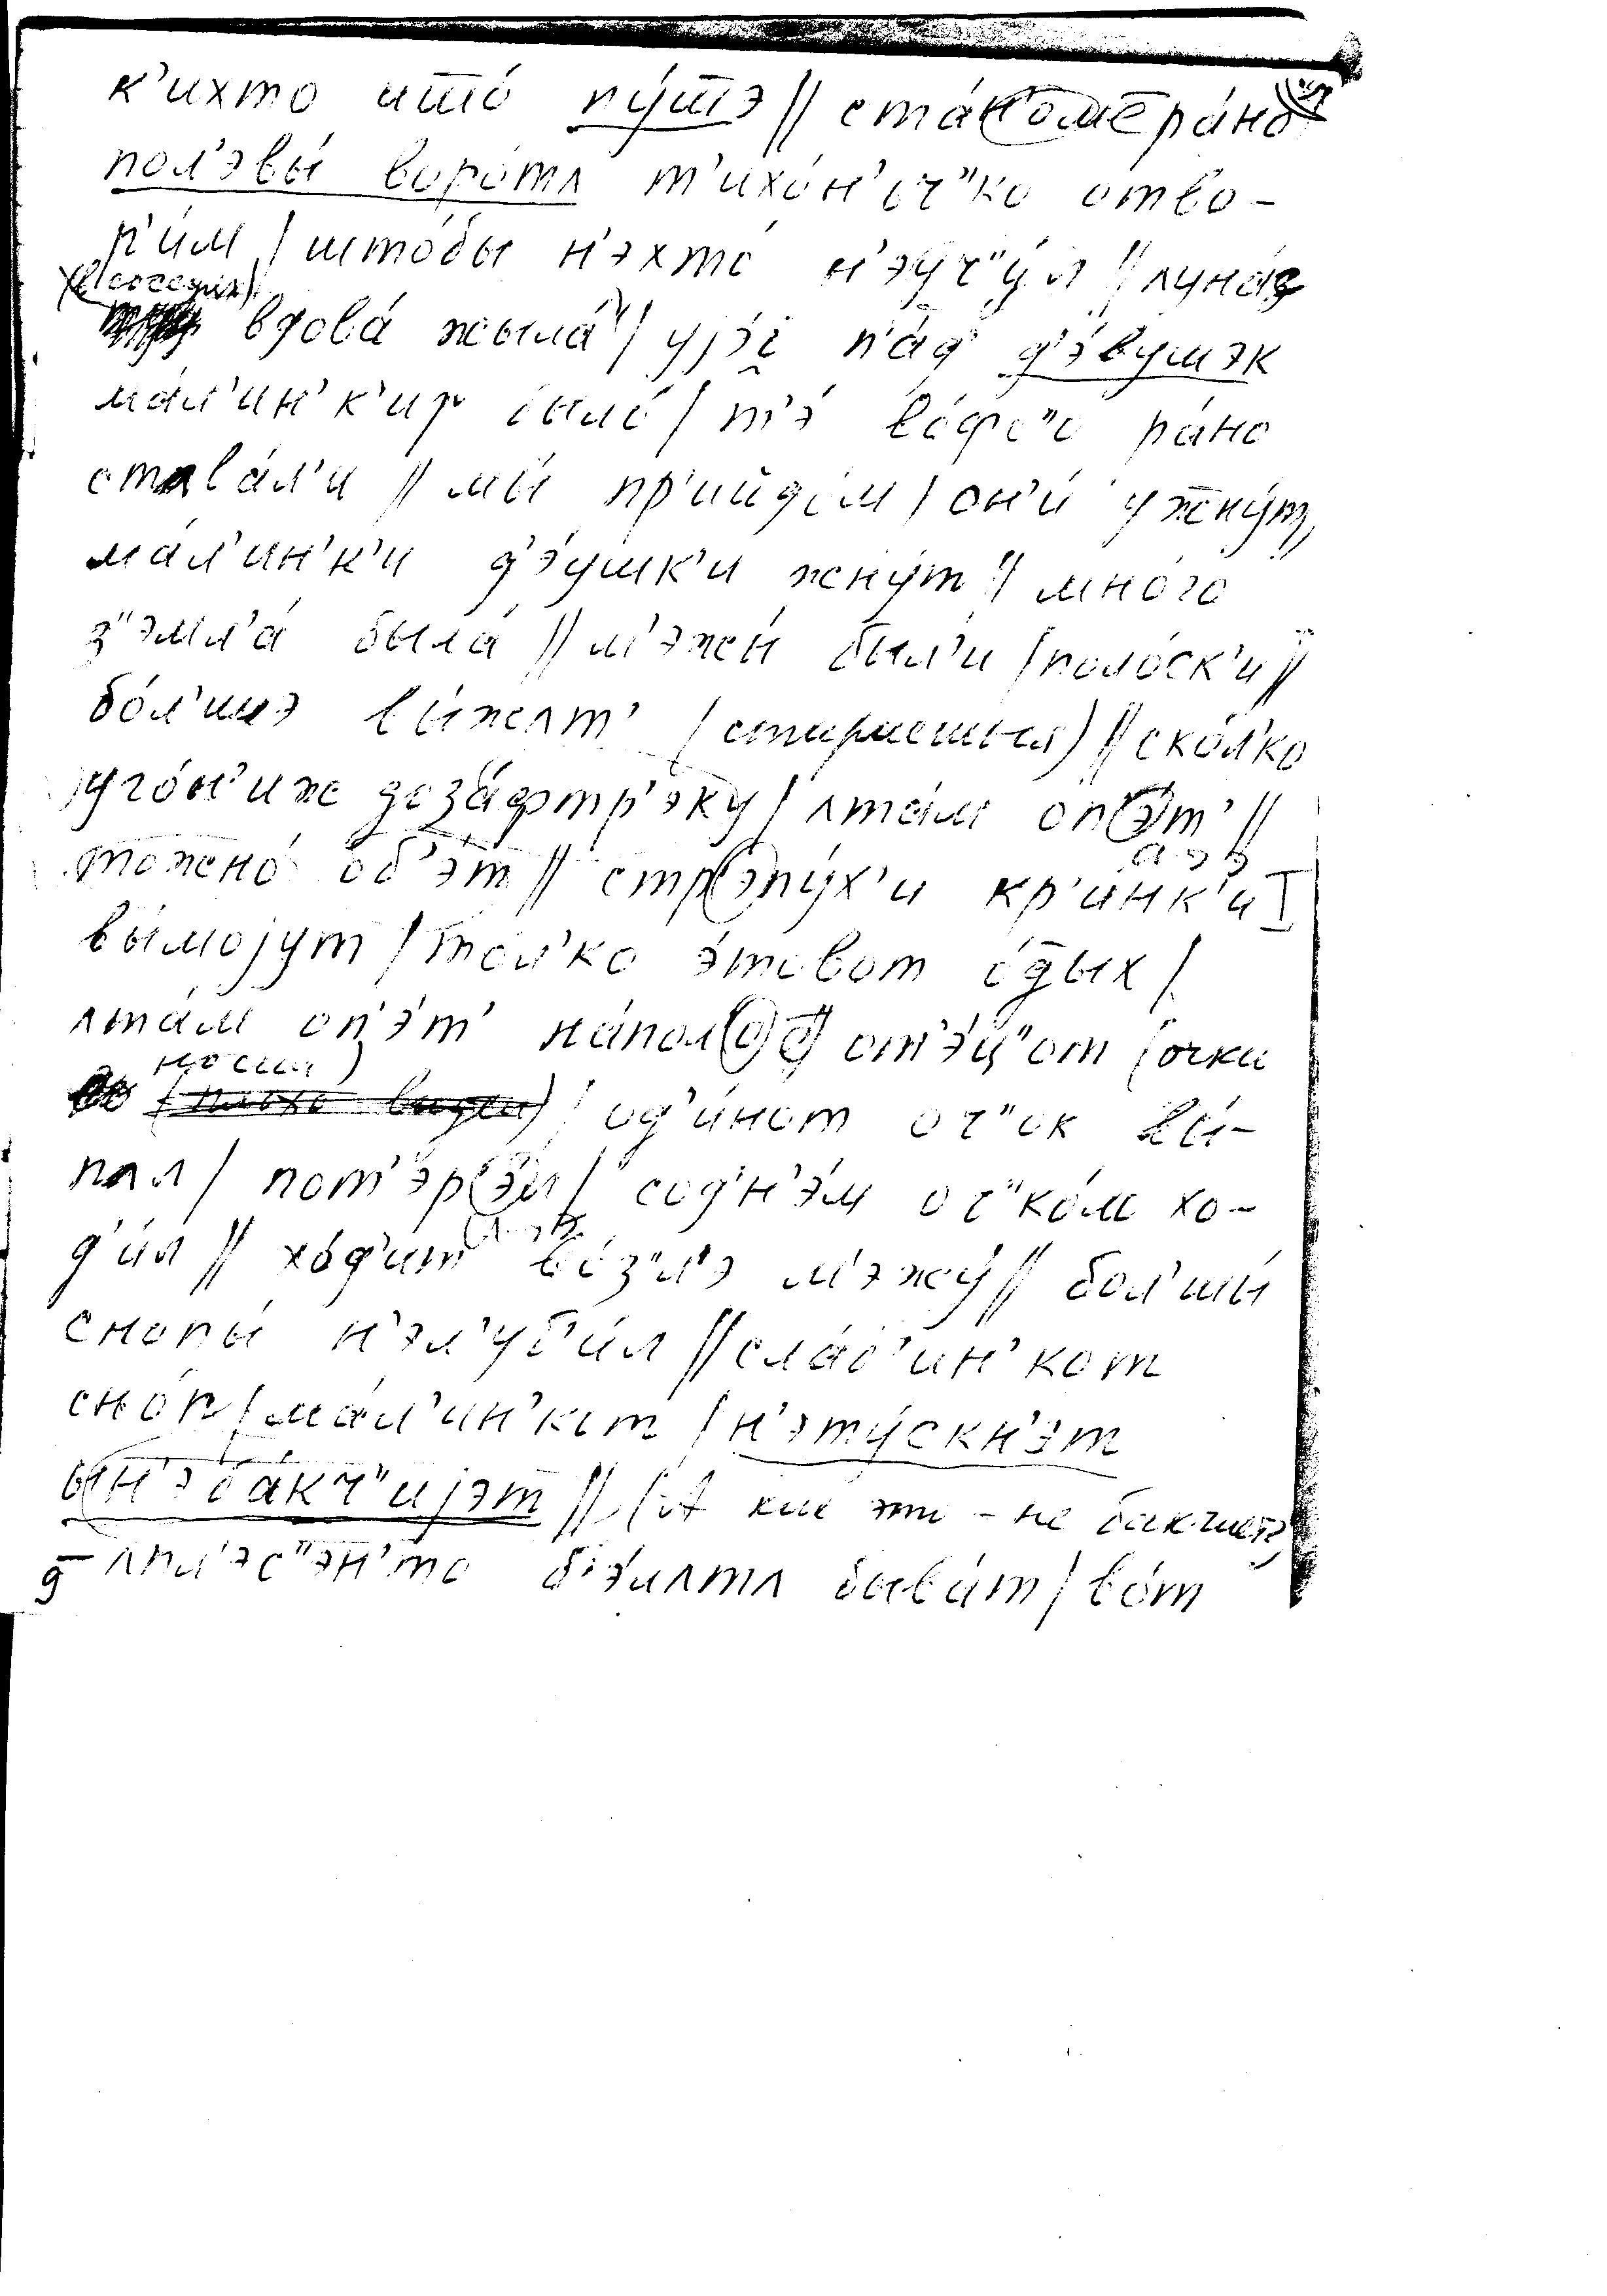 к'ихто што́ пу́тэ // ста́н'ом ра́но
пол'эвы́ воро́тʌ т'ихо́н'оч"ко отво-
р'и́м / што́бы н'эхто́ н'эуч"у́л // ʌуна́з
(в соседях)
вдова́ жыла́ / уjэ́i п'а́д' д'э́вушэк
ма́л'ин'к'их было́ / т'э́ во́фс"о ра́но
ставáл'и // мы́ пр'ийдо́м / он'и́ ужну́т,
ма́л'ин'к'и д'э́ушк'и жну́т // мно́го
з"эмл'а́ была́ // м'эжы́ был'и / поло́ск'и //
бо́л'шэ вы́жʌт' (стараешься) // ско́л'ко
уго́н'иж доза́фтр'эку / ʌта́м оп'э́т' //
тожно́ об'э́т // стр'эпу́х'и кр'и́нк'и
вы́моjут / то́л'ко э́товот о́дых /
ʌта́м оп'э́т' на́полосу от'э́ц"от (очки
носил) / од'и́нот оч"ок вы́-
пʌл / пот'эр'э́л / сод'н'э́м оч"ко́м хо-
д'и́л // хо́д'ит во́з"л'э м'эжу́ // бол'шы́
снопы́ н'эл'уб'и́л // сла́б'ин'кот
сно́п / ма́л'ин'кот / н'эту́скн'эт
ын'эба́кч"иjэт // (А как это - не бакчиет?)
- ʌпл'эс"эн'то б'э́лʌтʌ быва́т / во́т